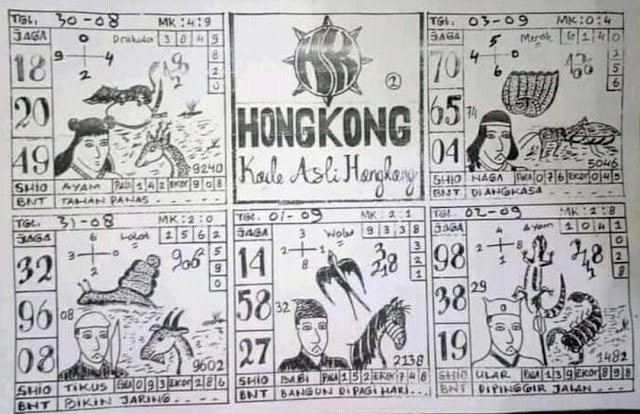 TGL. 30-08 MK:4:9
JAGA 0 Drakula 3 8 4 9
18 9 4 8
2 2
20 0
49 9240
SHIO AYAM PALA 1 4 2 EKOR 9 0 8
BNT TAHAN PANAS - - - -
HK
2
HONGKONG
Kode Asli Hongkong
TGL. 03-09 MK:0:4
JAGA 5 Merak 6 1 4 0
70 4 0 2
6 5
65 74 6
04 5046
SHIO NAGA PALA 0 7 6 EKOR 0 4 5
BNT DIANGKASA - - - - -
TGL. 31-08 MK:2:0
JAGA 6 Lolot 2 5 6 2
32 3 0 5
2 9
96 0
08 08 9602
SHIO TIKUS PALA 0 9 3 EKOR 2 8 6
BNT BIKIN JARING - - - -
TGL. 01-09 MK:2:1
JAGA 3 Walu 9 3 3 8
14 2 1 3
8 218 2
58 32 1
27 2138
SHIO BABI PALA 1 5 2 EKOR 7 4 8
BNT BANGUN DIPAGI HARI . . .
TGL. 02-09 MK:2:8
JAGA 4 Ayam 1 0 4 1
98 2 8 0
1 2
38 29 8
19 1482
SHIO ULAR PALA 0 1 3 EKOR 2 8 4
BNT DIPINGGIR JALAN - - - -